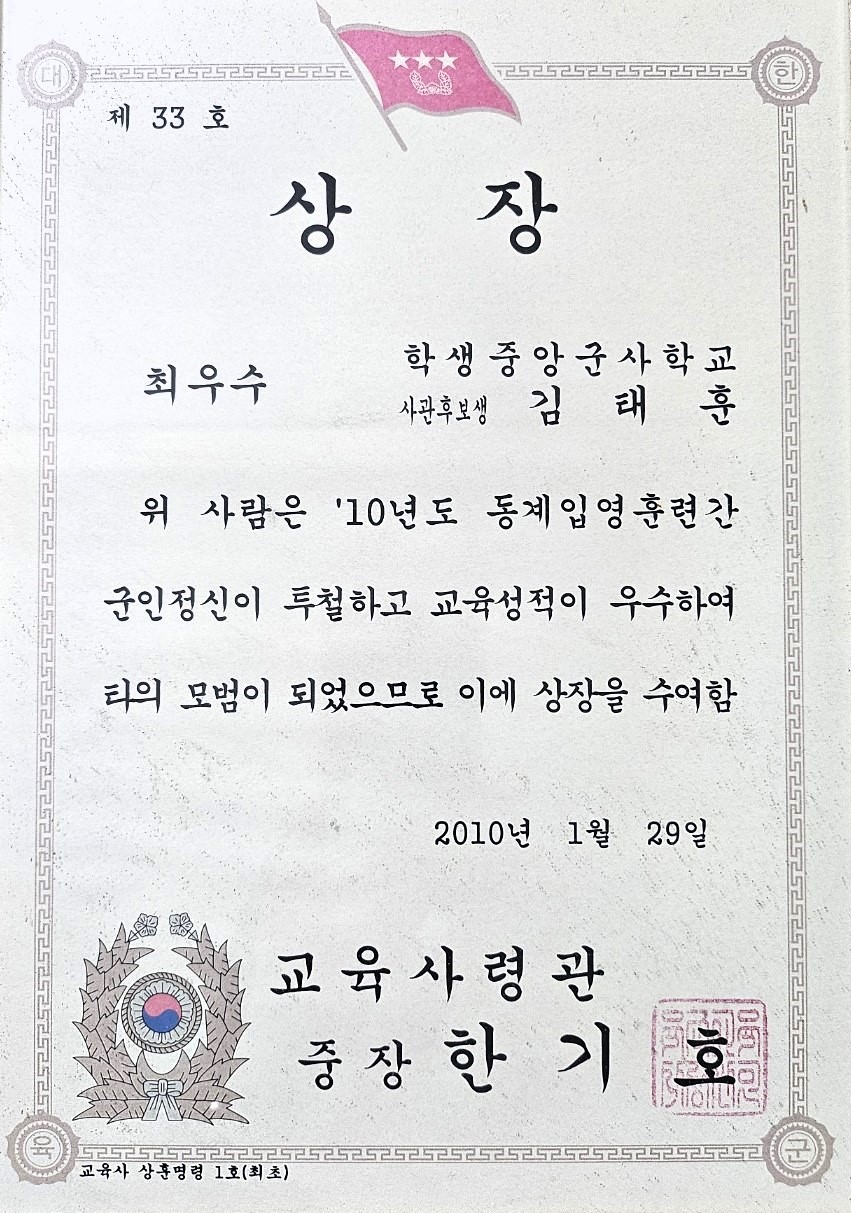 대 한
제 33 호
상 장
최우수
학생중앙군사학교
사관후보생 김 태 훈
위 사람은 '10년도 동계입영훈련간
군인정신이 투철하고 교육성적이 우수하여
타의 모범이 되었으므로 이에 상장을 수여함
2010년 1월 29일
교육사령관
중장 한 기 호
육 군
교육사 상훈명령 1호(최초)